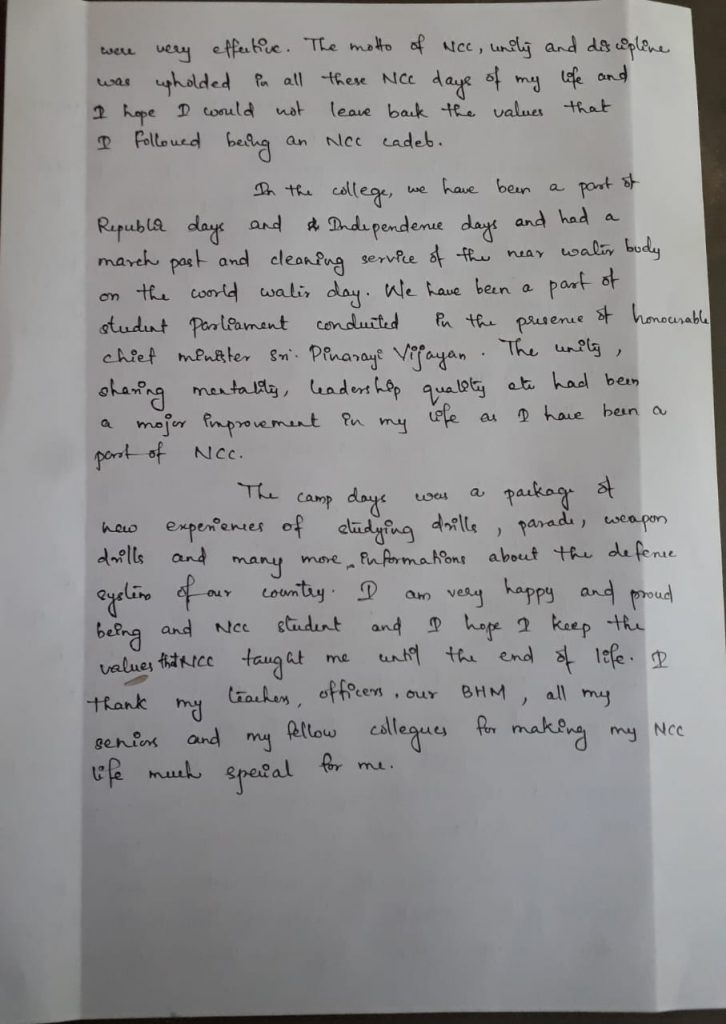 were very effective. The motto of NCC, unity and discipline
was upholded in all these NCC days of my life and
I hope I would not leave back the values that
I followed being an NCC cadet.
In the college, we have been a part of
Republic days and Independence days and had a
march past and cleaning service of the near water body
on the world water day. We have been a part of
student Parliament conducted in the presence of honourable
chief minister Sri. Pinarayi Vijayan. The unity,
sharing mentality, leadership quality etc had been
a major improvement in my life as I have been a
part of NCC.
The camp days was a package of
new experiences of studying drills, parade, weapon
drills and many more informations about the defence
system of our country. I am very happy and proud
being and NCC student and I hope I keep the
values that NCC taught me until the end of life. I
thank my teachers, officers, our BHM, all my
seniors and my fellow collegues for making my NCC
life much special for me.